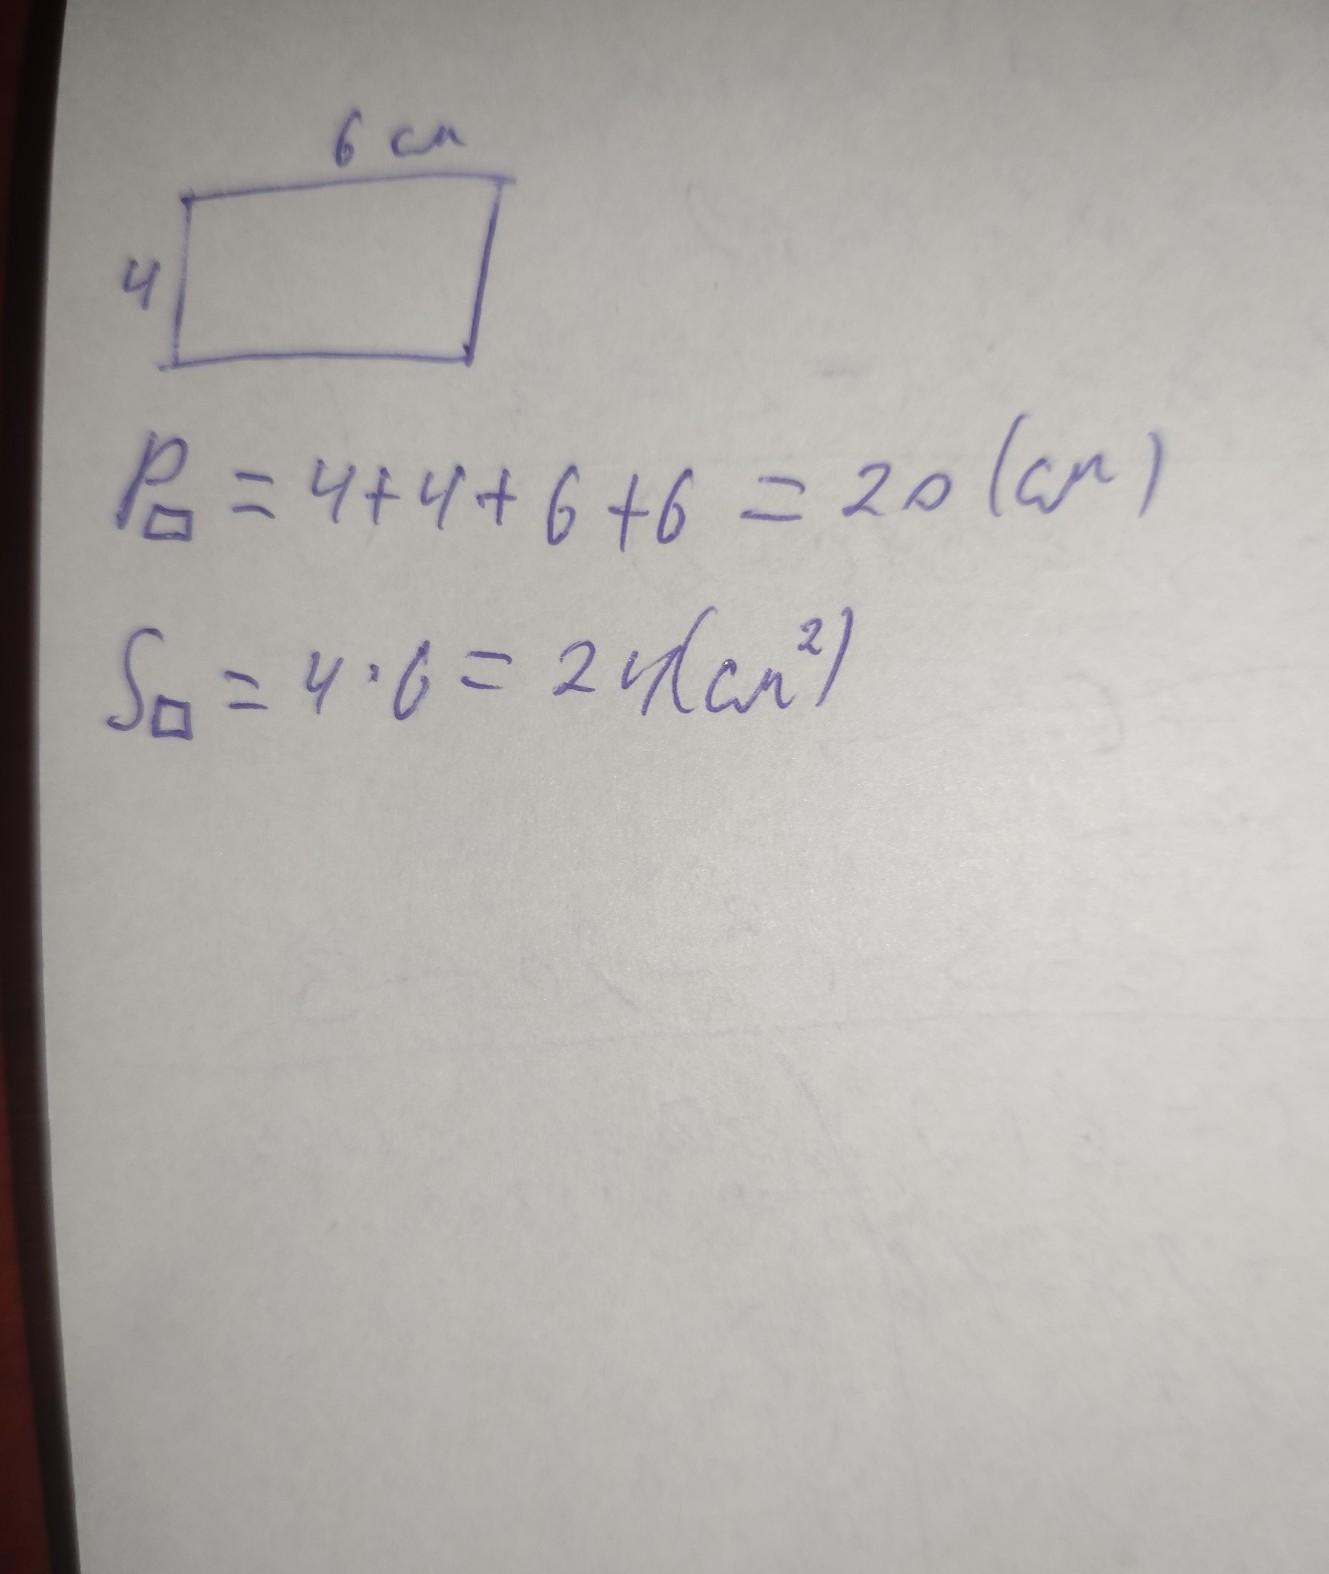 6 см
4
P□ = 4+4+6+6 = 20 (см)
S□ = 4·6 = 24(см²)